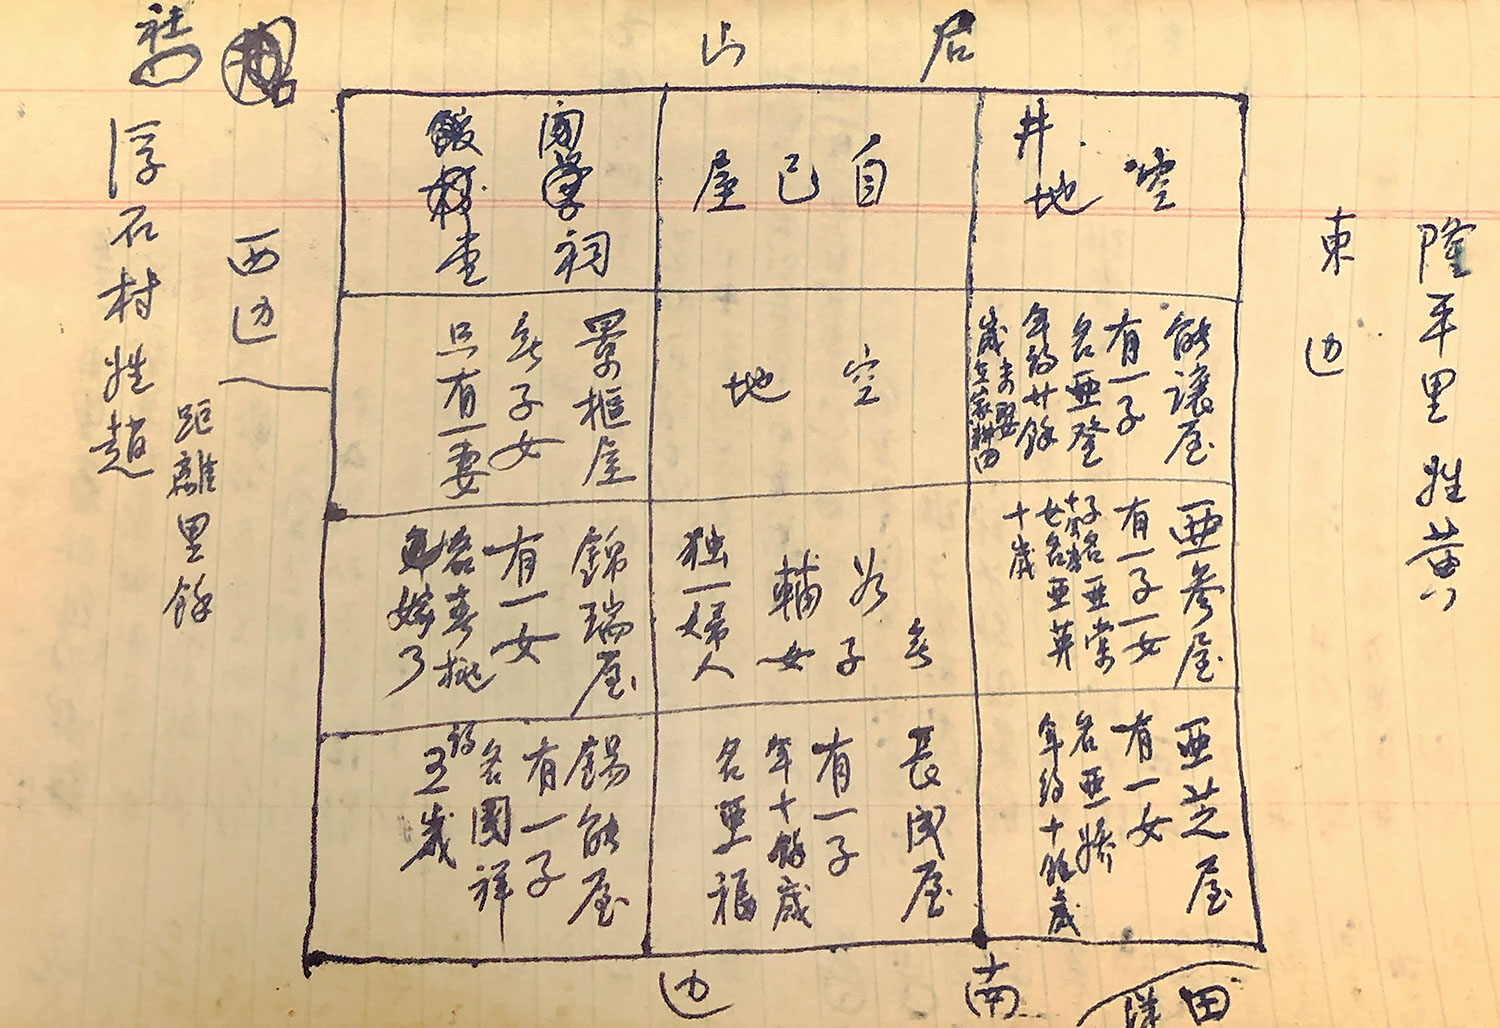 后山
空地
井
自己屋
祠
堂
東边
隆平里姓黄
能讓屋
有一子
名亜登
年約廿餘
歲未娶
在家耕田
空地
景框屋
無子女
只有一妻
西边
浮石村姓趙
距離里餘
亜参屋
有一子一女
子名亜棠
女名亜英
十歲
無
子
女
輔
独一婦人
錦瑞屋
有一女
名春桃
嫁了
亜芝屋
有一女
名亜嬌
年約十餘歲
長成屋
有一子
年十餘歲
名亜福
錫能屋
有一子
名國祥
約五歲
南边
田